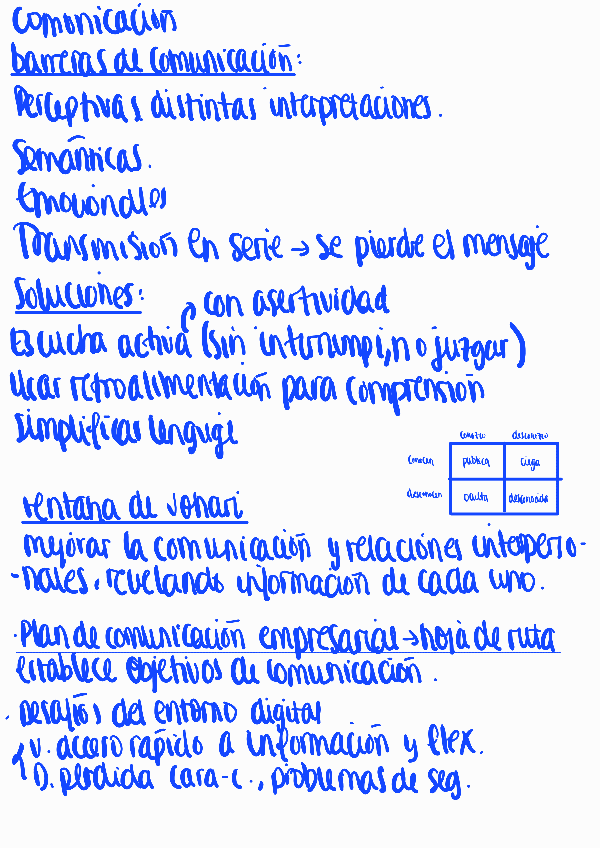 Comunicación
barreras de comunicación:
Perceptivas distintas interpretaciones.
Semánticas.
Emocionales
Transmisión en serie → se pierde el mensaje
Soluciones:
con asertividad
Escucha activa (sin interrumpi, n o juzgar)
Usar retroalimentación para comprensión
simplificar lenguje
conozco desconozco
conocen publica ciega
desconocen oculta desconocida
ventana de Johari
mejorar la comunicación y relaciones interperso-
-nales, revelando información de cada uno.
·Plan de comunicación empresarial → hoja de ruta
establece objetivos de comunicación.
· Desafíos del entorno digital
V. acceso rapido a información y flex.
D. perdida cara-c., problemas de seg.